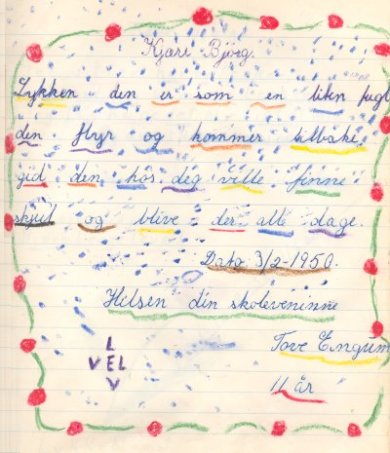 Kjære Bjørg.
Lykken den er som en liten fugl
den flyr og kommer tilbake,
gid den hos deg ville finne
skjul og blive der alle dage.
Dato 3/2-1950.
Hilsen din skoleveninne
Tove Engum
11 år
L
VEL
V